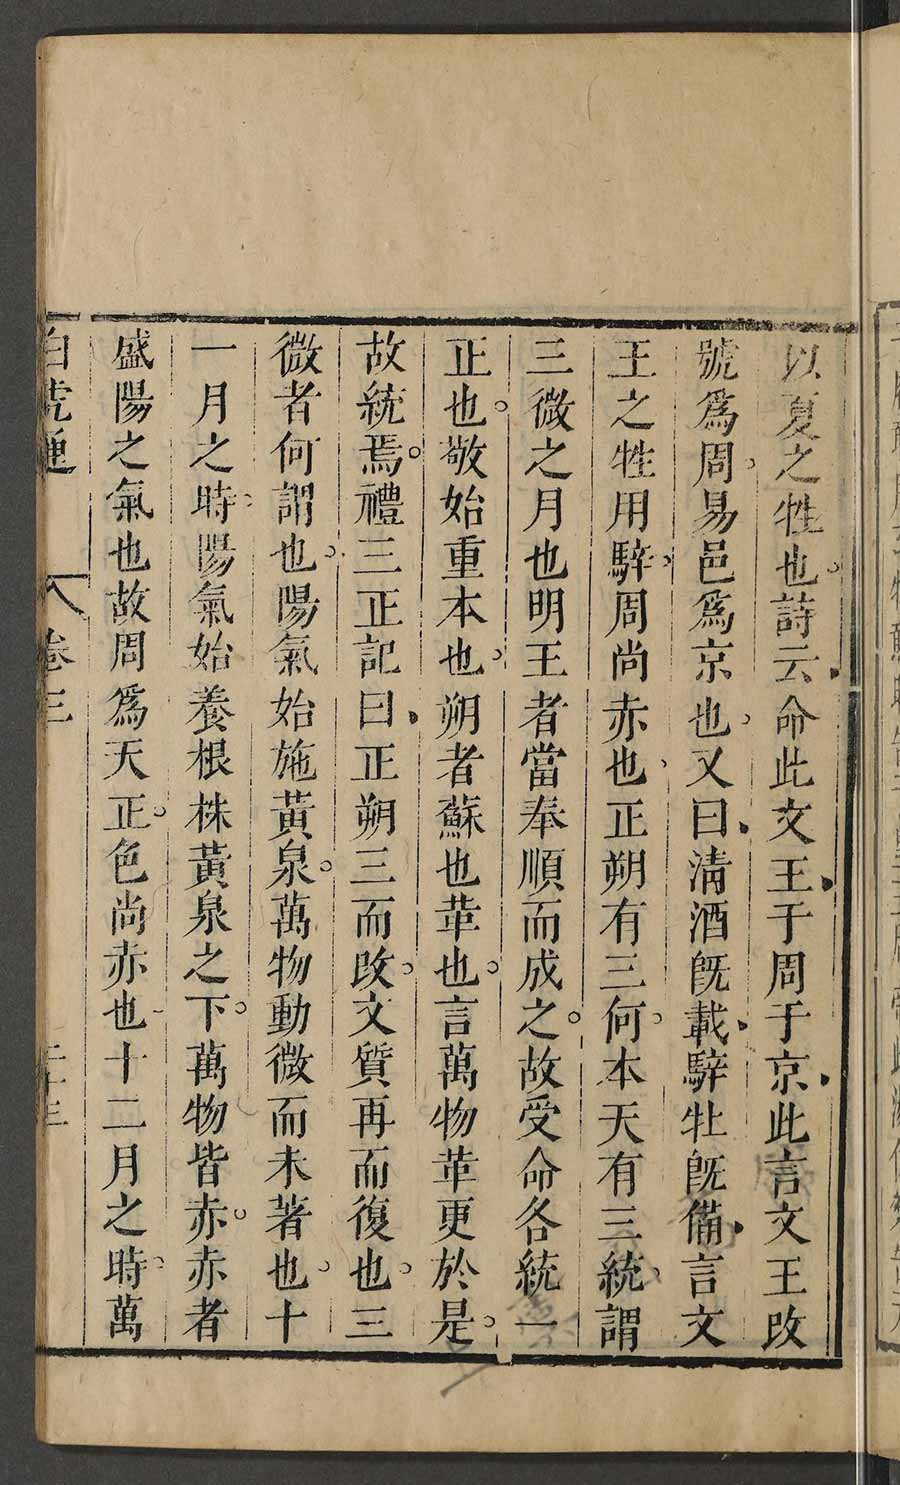 以夏之牲也詩云命此文王于周于京此言文王改
號爲周易邑爲京也又曰淸酒旣載騂牡旣備言文
王之牲用騂周尚赤也正朔有三何本天有三統謂
三微之月也明王者當奉順而成之故受命各統一
正也敬始重本也朔者蘇也革也言萬物革更於是
故統焉禮三正記曰正朔三而改文質再而復也三
微者何謂也陽氣始施黃泉萬物動微而未著也十
一月之時陽氣始養根株黃泉之下萬物皆赤赤者
盛陽之氣也故周爲天正色尚赤也十二月之時萬
白虎通 卷三